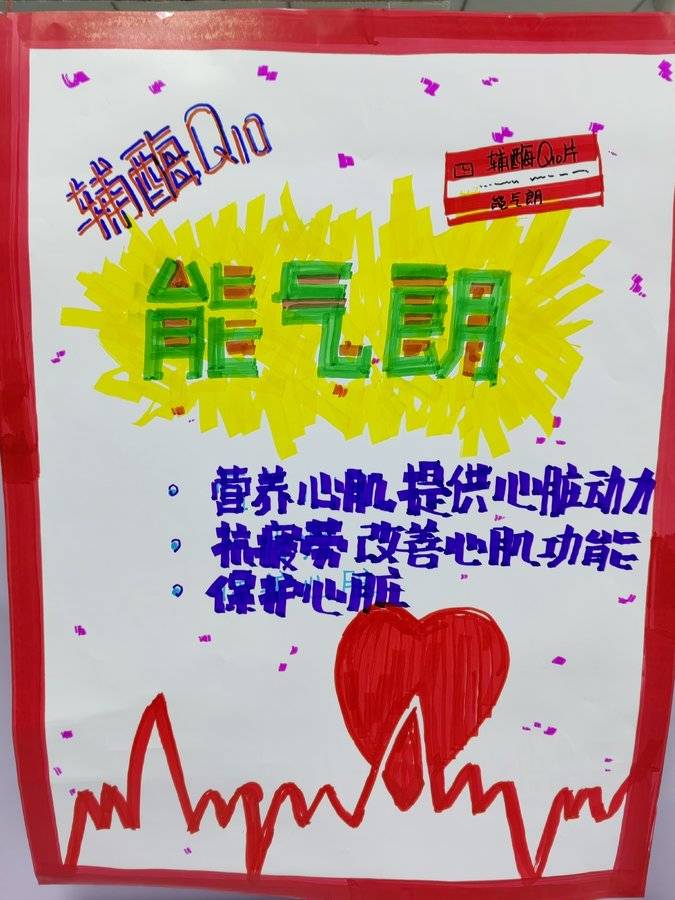 辅酶Q10
四 辅酶Q10片
能气朗
能气朗
营养心肌 提供心脏动力
抗疲劳 改善心肌功能
保护心脏